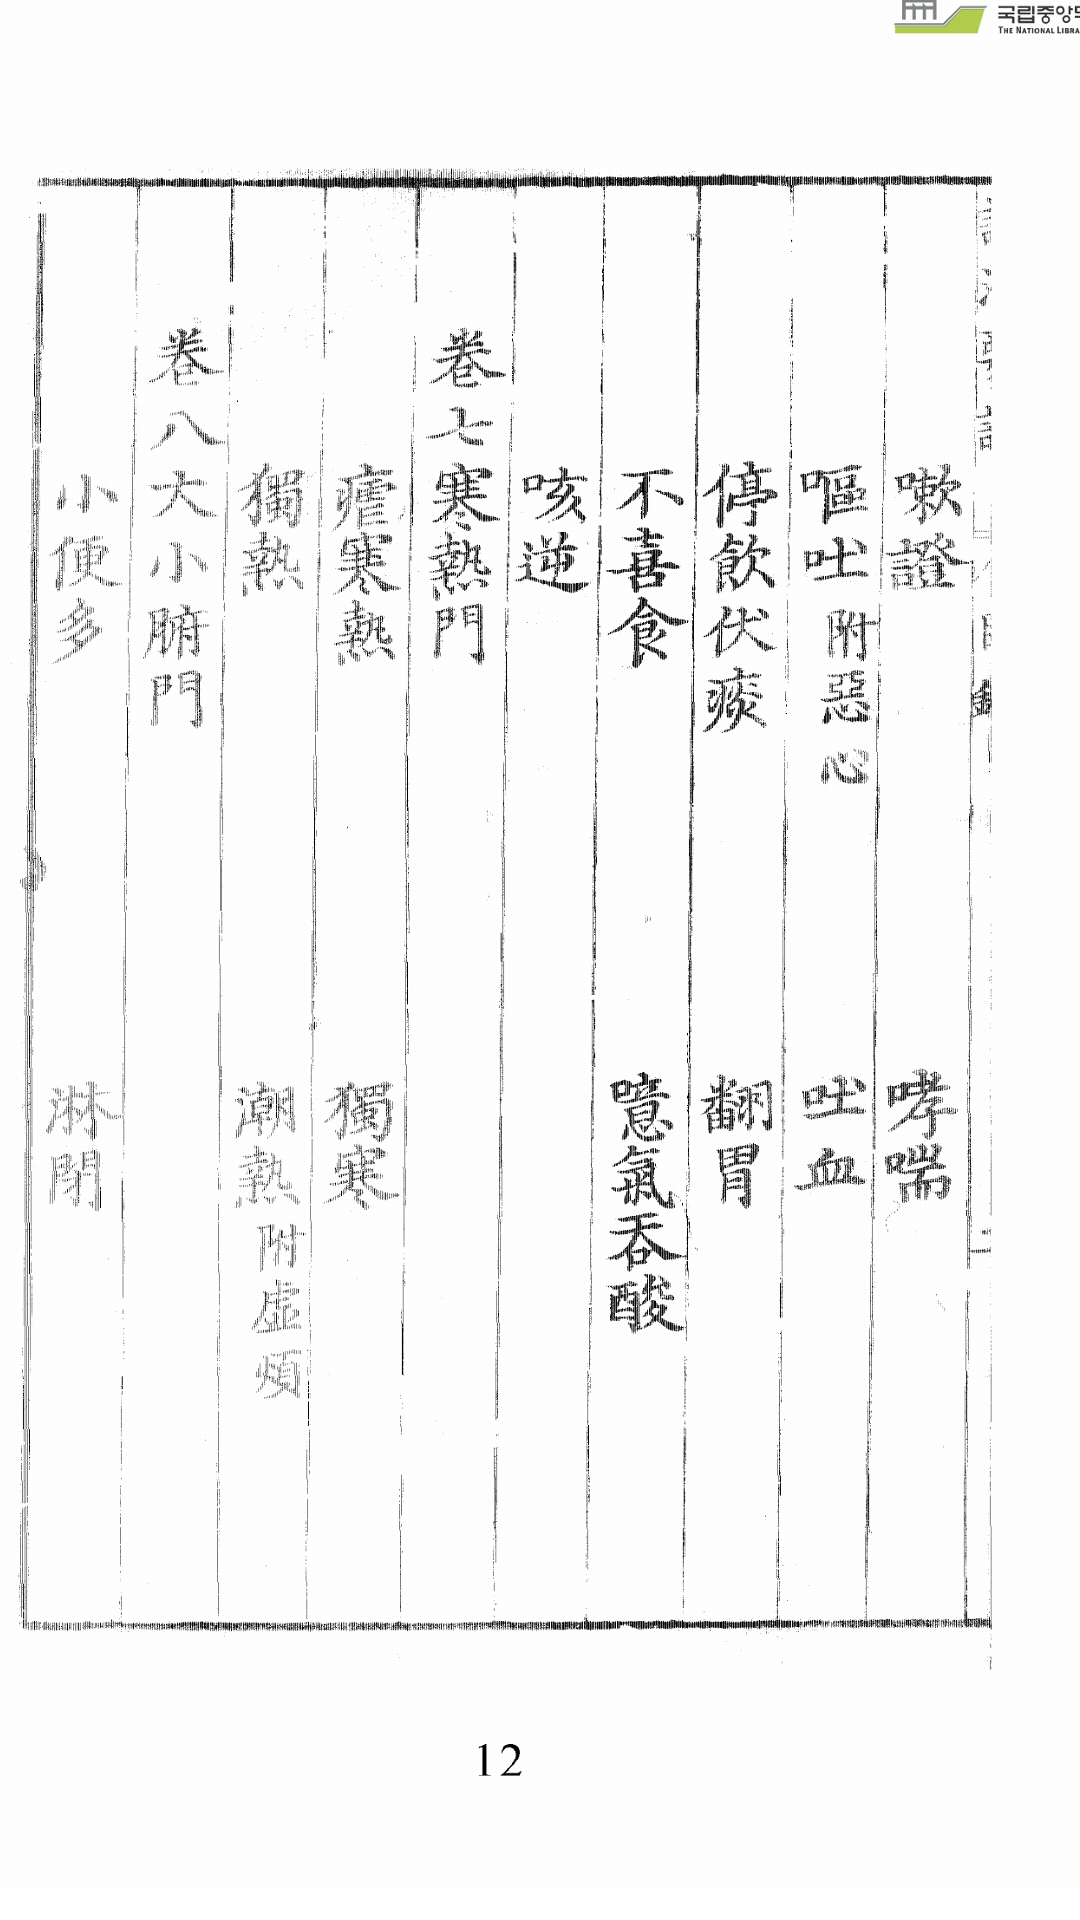 국립중앙
THE NATIONAL LIBRA
嗽證 哮喘
嘔吐附惡心 吐血
停飲伏痰 翻胃
不喜食 噫氣吞酸
咳逆
卷七寒熱門
瘧寒熱 獨寒
獨熱 潮熱附虛煩
卷八大小腑門
小便多 淋閉
12